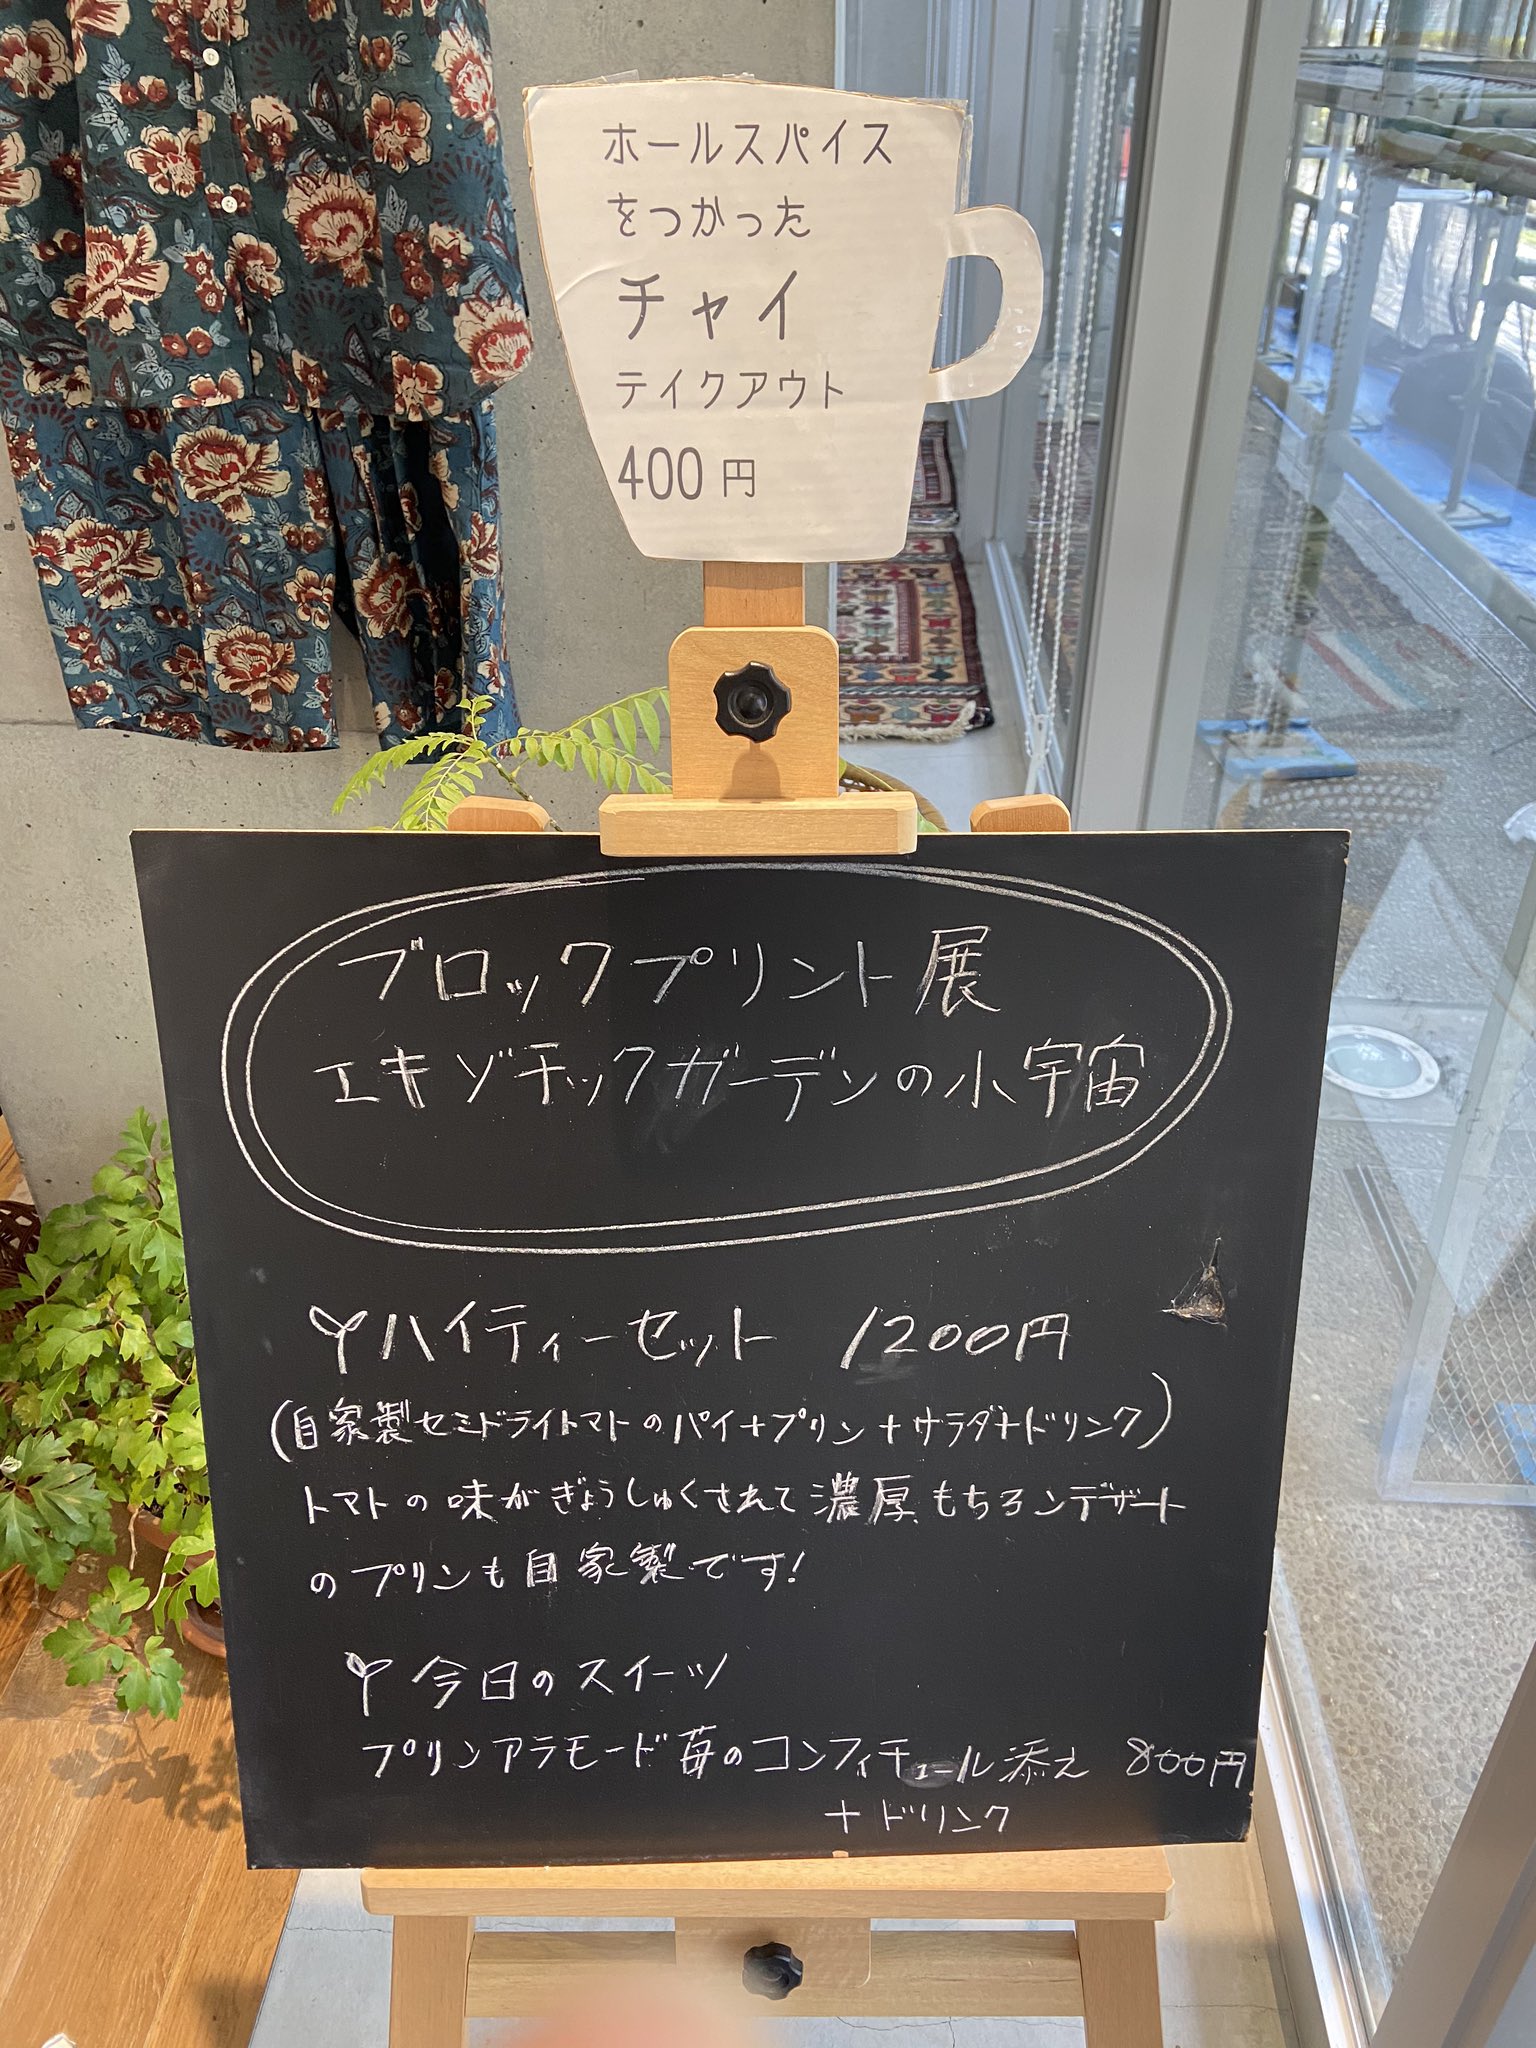 ホールスパイス
をつかった
チャイ
テイクアウト
400円
ブロックプリント展
エキゾチックガーデンの小宇宙
ハイティーセット 1200円
(自家製セミドライトマトのパイ+プリン+サラダ+ドリンク)
トマトの味がぎょうしゅくされて濃厚もちろンデザート
のプリンも自家製です!
今日のスイーツ
プリンアラモード苺のコンフィチュール添え 800円
+ドリンク